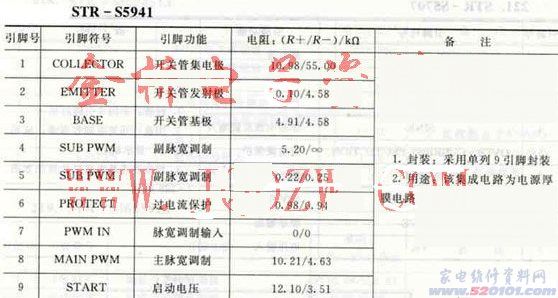 STR-S5941
引脚号 引脚符号 引脚功能 电阻:(R+/R-)/kΩ 备 注
1 COLLECTOR 开关管集电极 10.98/55.00
2 EMITTER 开关管发射极 0.10/4.58
3 BASE 开关管基极 4.91/4.58
4 SUB PWM 副脉宽调制 5.20/∞
5 SUB PWM 副脉宽调制 0.22/0.25
6 PROTECT 过电流保护 0.98/0.94
7 PWM IN 脉宽调制输入 0/0
8 MAIN PWM 主脉宽调制 10.21/4.63
9 START 启动电压 12.10/3.51
1. 封装:采用单列9引脚封装
2. 用途:该集成电路为电源厚
膜电路
家电维修资料网
www.520101.com